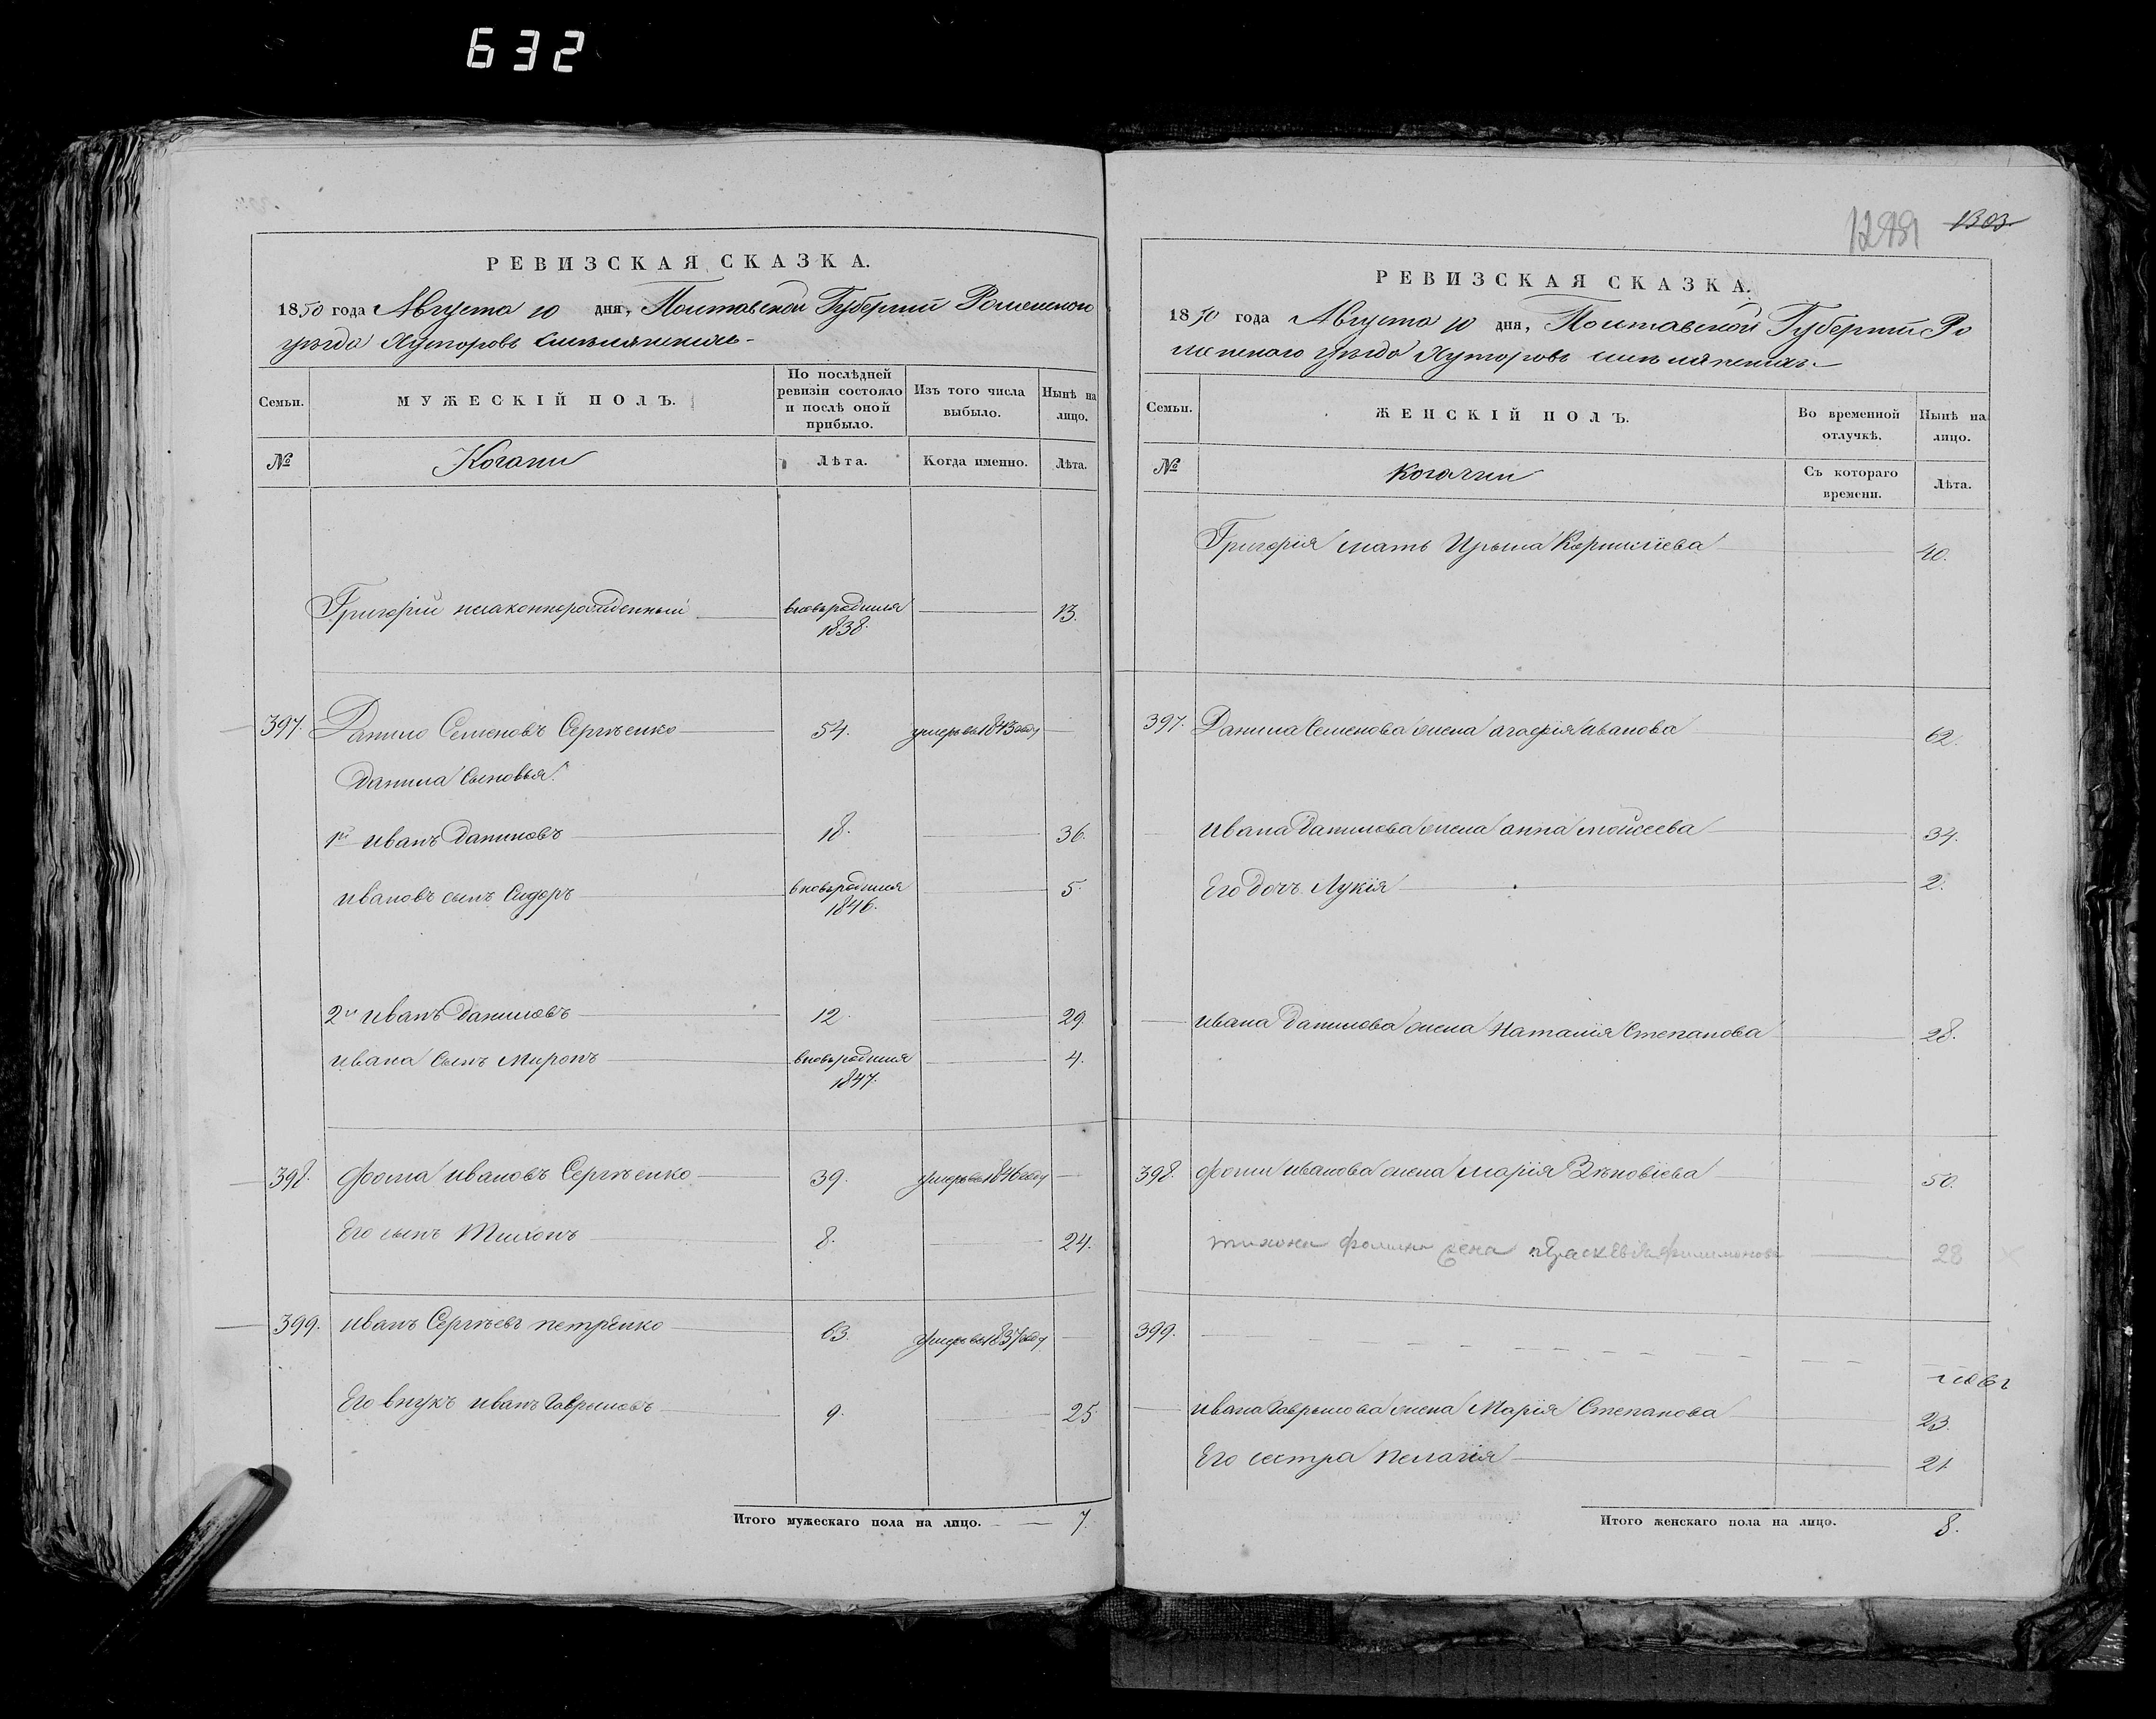 632
РЕВИЗСКАЯ СКАЗКА.
1850 года Августа 10 дня, Полтавской Губерніи Роменского
уезда Хуторовъ
Семьи.
МУЖЕСКІЙ ПОЛЪ.
По послѣдней ревизіи состояло и послѣ оной прибыло.
Изъ того числа выбыло.
Нынѣ на лицо.
№
Лѣта.
Когда именно.
Лѣта.
Григорій незаконнорожденный вновьродился 1838. 13.
397. Данило Семеновъ Сергѣенко 54. умеръ въ 1843 году
Данила Сыновья:
1й Иванъ Даниловъ 18. 36.
Ивановъ сынъ Сидоръ вновьродился 1846. 5.
2й Иванъ Даниловъ 12. 29.
Ивана Сынъ Миронъ вновьродился 1847. 4.
398. Фома Ивановъ Сергѣенко 39. умеръ въ 1846 году
Его сынъ Тихонъ 8. 24.
399. Иванъ Сергѣевъ Петренко 63. умеръ въ 1837 году
Его внукъ Иванъ Гавриловъ 9. 25.
Итого мужескаго пола на лицо. 7.
1303
РЕВИЗСКАЯ СКАЗКА.
1850 года Августа 10 дня, Полтавской Губерніи Ро
менского уезда Хуторовъ
Семьи.
ЖЕНСКІЙ ПОЛЪ.
Во временной отлучкѣ.
Нынѣ на лицо.
№
Съ котораго времени.
Лѣта.
Григорія мать Ирына Корнилиева 40.
397. Данила Семенова жена Агафія Иванова 62.
Ивана Данилова жена Анна Мойсеева 34.
Его дочь Лукія 2.
Ивана Данилова жена Наталія Степанова 28.
398. Фомы Иванова жена Марія Зѣновіева 50.
Тихона Фомина жена Параскевія Филимонова 28
399.
Ивана Гаврылова жена Марія Степанова 23.
Его сестра Пелагія 21.
Итого женскаго пола на лицо. 8.